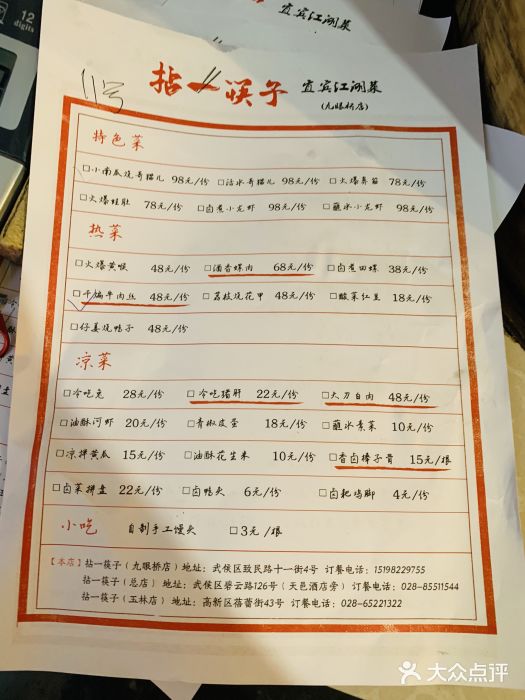 12
digits
宜宾江湖菜
11号
拈一筷子 宜宾江湖菜
(九眼桥店)
特色菜
□小南瓜烧哥猫儿 98元/份 □活水哥猫儿 98元/份 □火爆鼻筋 78元/份
□火爆蛙肚 78元/份 □卤煮小龙虾 98元/份 □蘸水小龙虾 98元/份
热菜
□火爆黄喉 48元/份 □酒香螺肉 68元/份 □卤煮田螺 38元/份
□干煸牛肉丝 48元/份 □荔枝烧花甲 48元/份 □酸菜红豆 18元/份
□仔姜烧鸭子 48元/份
凉菜
□冷吃兔 28元/份 □冷吃猪肝 22元/份 □大刀白肉 48元/份
□油酥河虾 20元/份 □青椒皮蛋 18元/份 □蘸水素菜 10元/份
□凉拌黄瓜 15元/份 □油酥花生米 10元/份 □香卤棒子骨 15元/根
□卤菜拼盘 22元/份 □卤鸭头 6元/份 □卤粑鸡脚 4元/份
小吃 自制手工馒头 □3元/根
【本店】拈一筷子（九眼桥店）地址：武侯区致民路十一街4号 订餐电话：15198229755
拈一筷子（总店）地址：武侯区碧云路126号（天邑酒店旁）订餐电话：028-85511544
拈一筷子（玉林店）地址：高新区蓓蕾街43号 订餐电话：028-65221322
大众点评